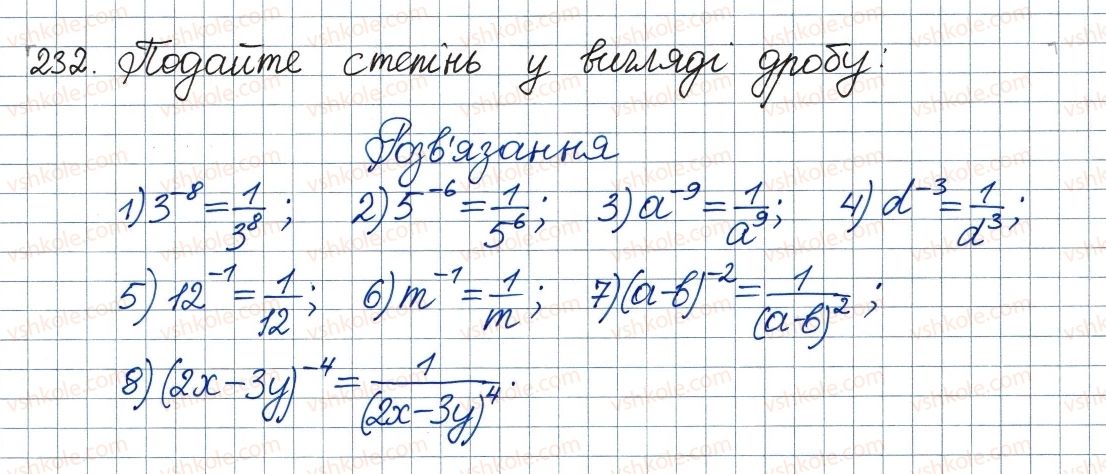 232. Подайте степінь у вигляді дробу:
Розв'язання
1) 3^{-8} = 1/3^8; 2) 5^{-6} = 1/5^6; 3) a^{-9} = 1/a^9; 4) d^{-3} = 1/d^3;
5) 12^{-1} = 1/12; 6) m^{-1} = 1/m; 7) (a-b)^{-2} = 1/(a-b)^2;
8) (2x-3y)^{-4} = 1/(2x-3y)^4.